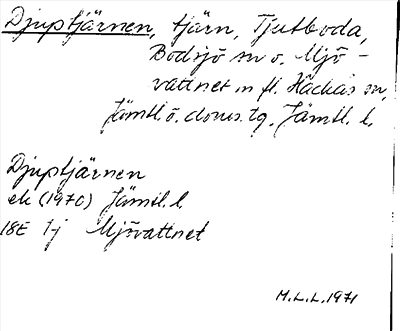 Djuptjärnen, tjärn, Tjutboda,
Bodsjö sn o. Mjö-
vattnet m fl. Häckås sn,
Jämtl.ö. doms.tg. Jämtl. l.
Djuptjärnen
ek (1970) Jämtl. l.
18E 1-j Mjövattnet
M.L.L. 1971